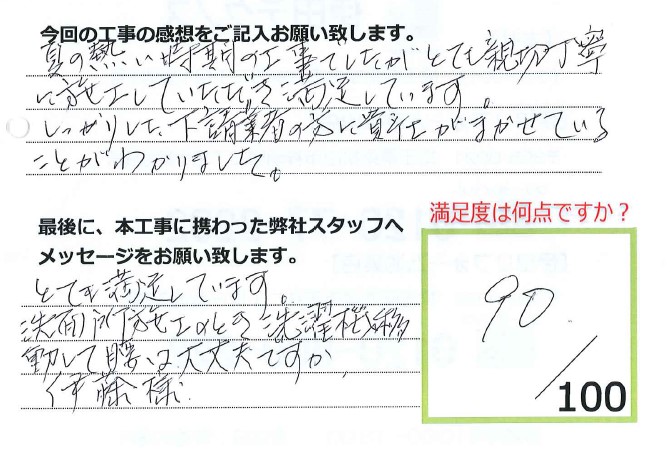 今回の工事の感想をご記入お願い致します。
夏の熱い時期の工事でしたがとても親切丁寧
に施工していただき満足しています。
しっかりした下請業者の方に責任がまかせている
ことがわかりました。
最後に、本工事に携わった弊社スタッフへ
メッセージをお願い致します。
とても満足しています。
洗面所施工のとき洗濯機移
動して腰は大丈夫ですか
伊藤様
満足度は何点ですか？
90
/100